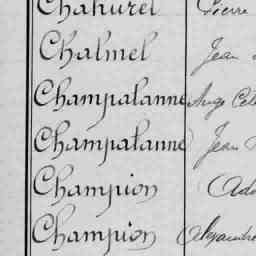 Chahurel Pierre
Chalmel Jean
Champalanne Ange Cél
Champalanne Jean
Champion Ado
Champion Alexandre